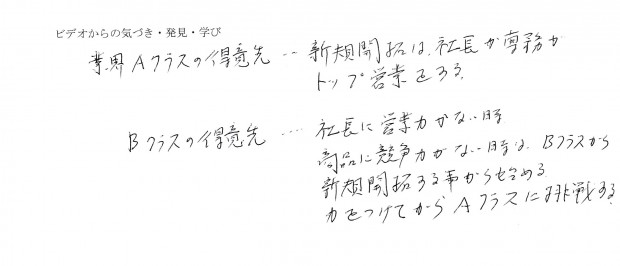 ビデオからの気づき・発見・学び
業界Aクラスの得意先…新規開拓は、社長か専務が
トップ営業をする。
Bクラスの得意先…社長に営業力がない時
商品に競争力がない時は、Bクラスから
新規開拓する事から始める
力をつけてからAクラスに挑戦する